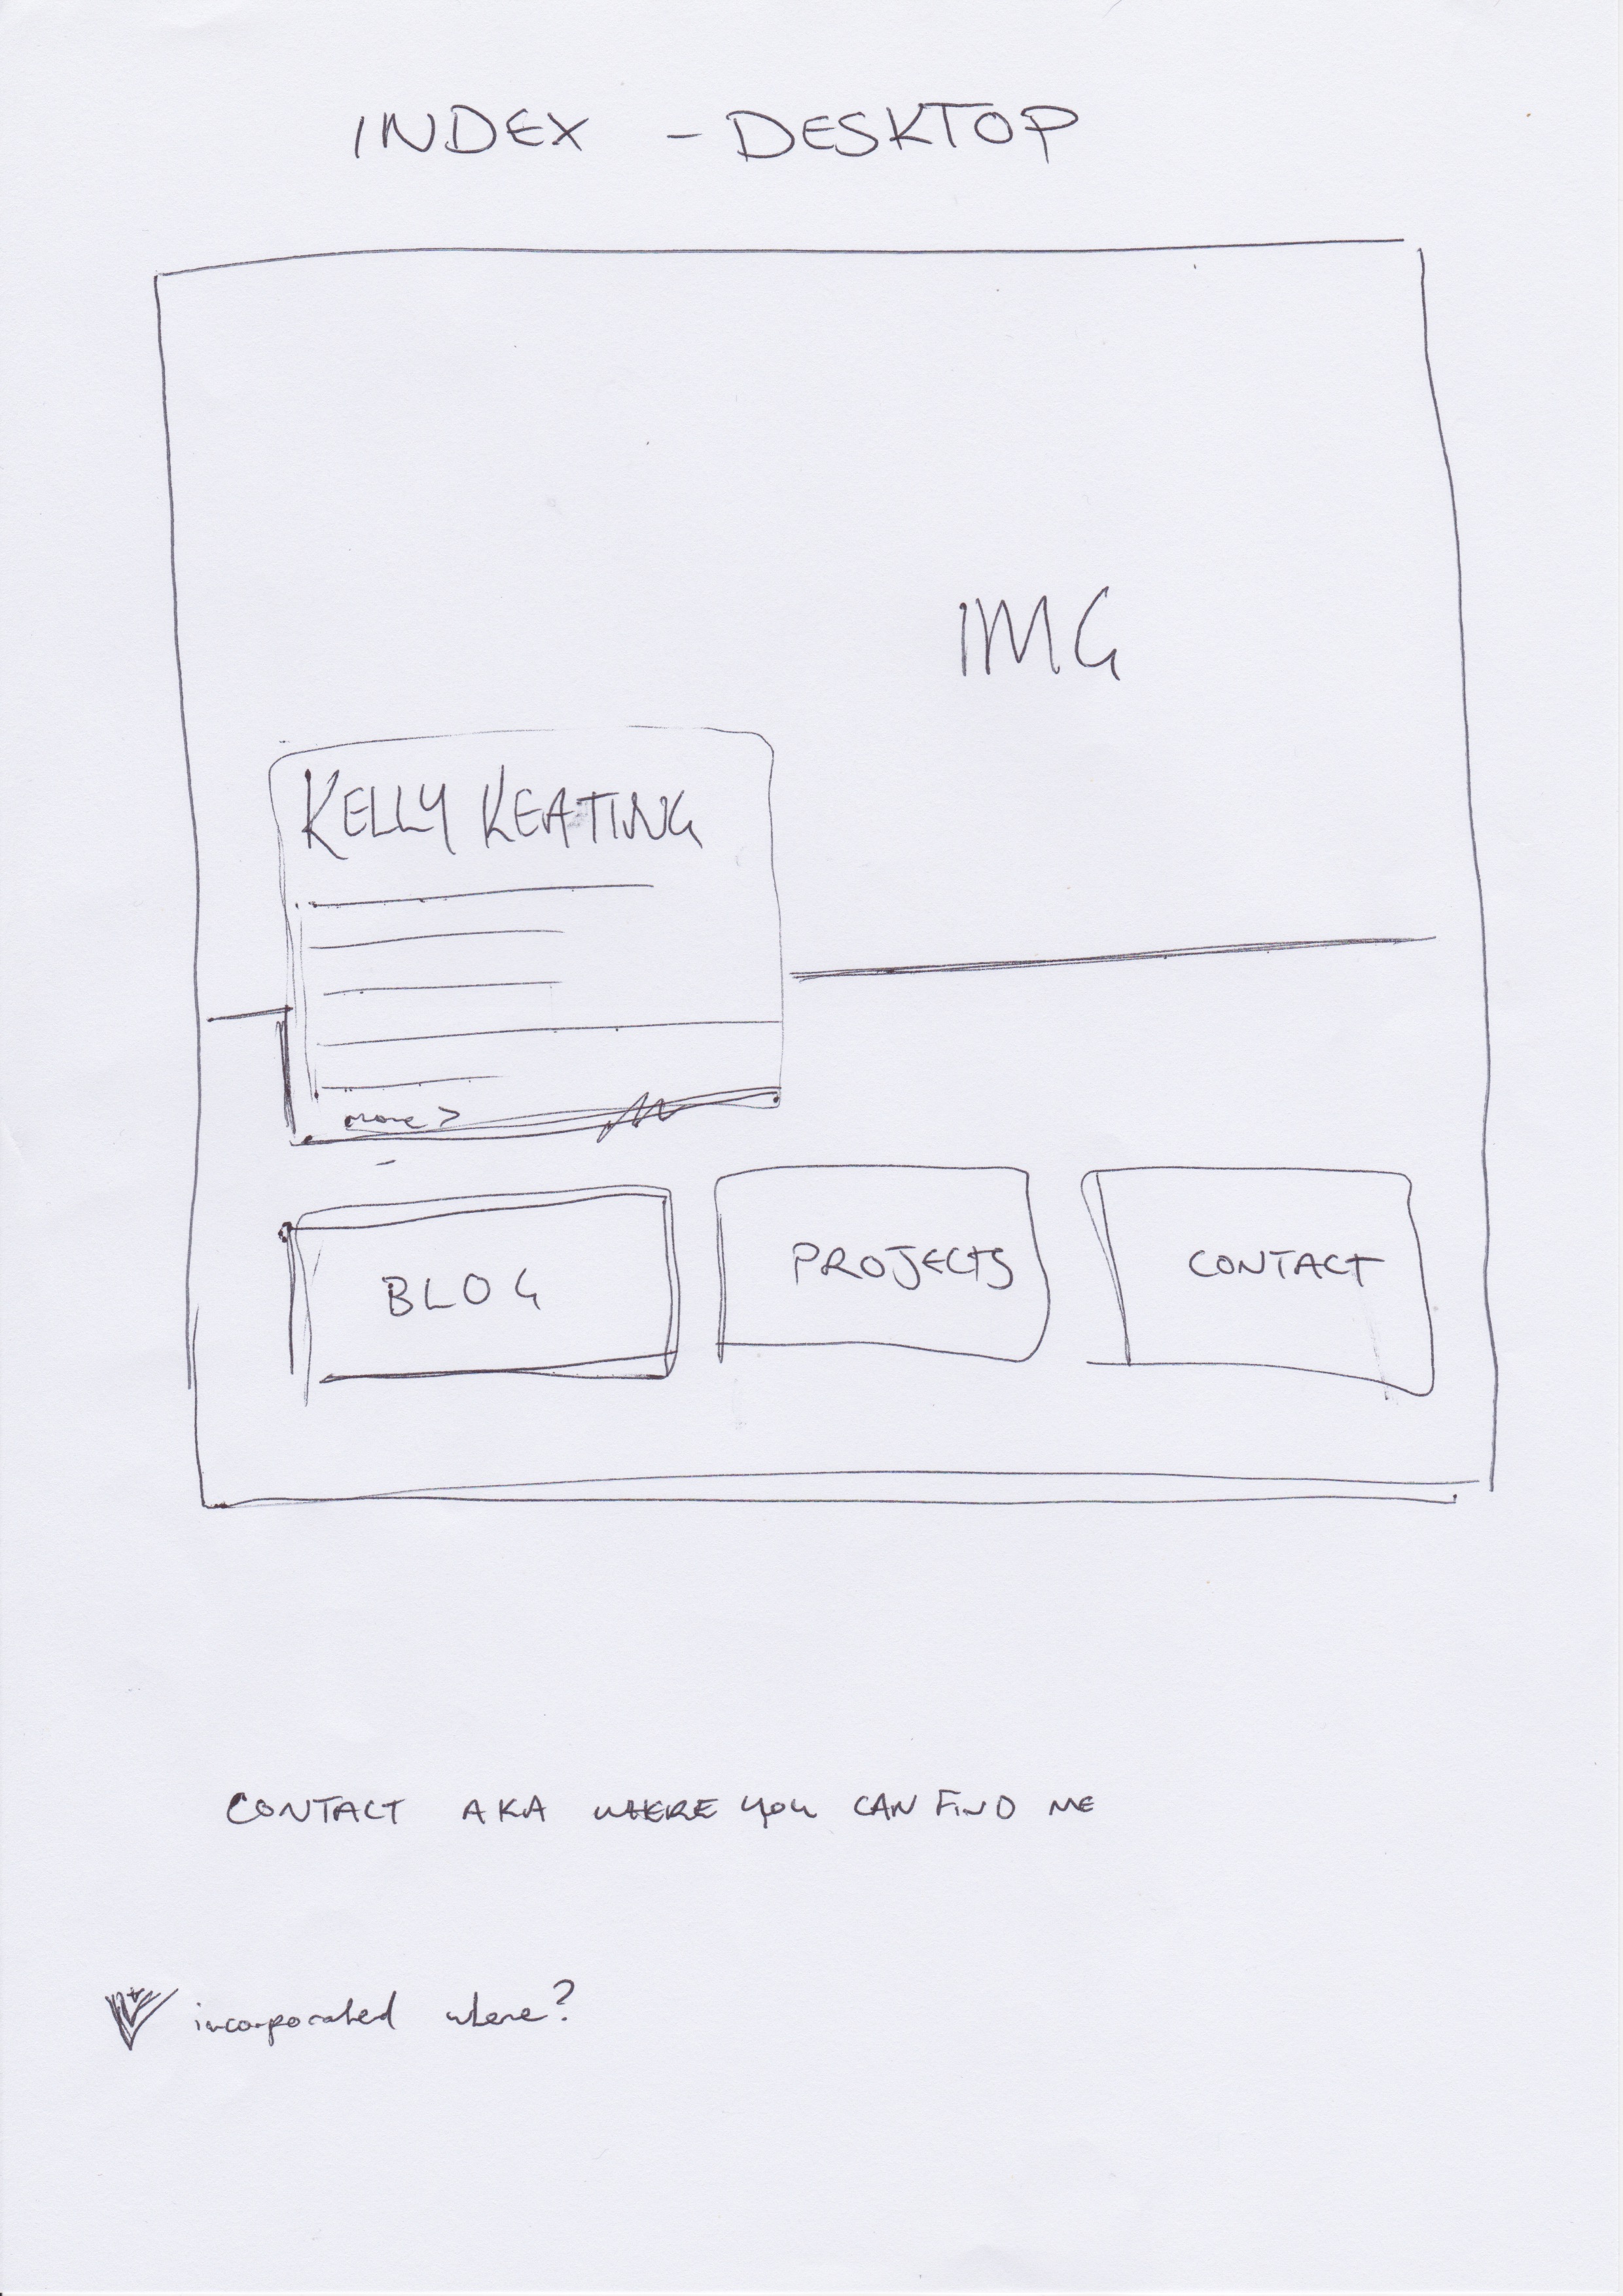 INDEX - DESKTOP
IMG
KELLY KEATING
more >
BLOG PROJECTS CONTACT
CONTACT AKA WHERE YOU CAN FIND ME
incorporated where?